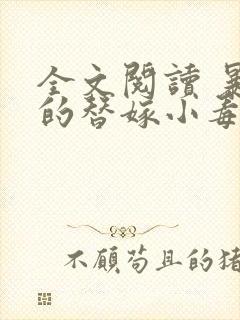 全文閱讀
的替嫁小毒
不顧苟且的猪